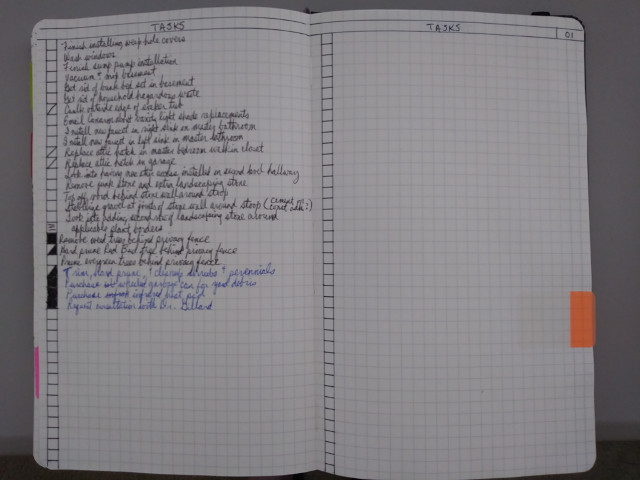 TASKS
Finish installing weep hole covers
Wash windows
Finish sump pump installation
Vacuum & mop basement
Get rid of bunk bed set in basement
Get rid of household hazardous waste
Caulk outside edge of soaker tub
Email about vanity light shade replacements
Install new faucet in right sink on master bathroom
Install new faucet in left sink on master bathroom
Replace attic hatch in master bedroom walk-in closet
Replace attic hatch in garage
Look into having installed on second level hallway
Remove junk stone and extra landscaping stone
Top off behind stone wall around stoop
gravel at front of stone wall around stoop (
Look into adding second row of landscaping stone around
applicable plant borders
Remove weed trees behind privacy fence
Hard prune Red Bud tree behind privacy fence
Prune evergreen trees behind privacy fence
Trim, hard prune, & cleanup shrubs & perennials
Purchase wheeled garbage can for yard debris
Purchase infrared heat
Request consultation with Dr.
TASKS
01